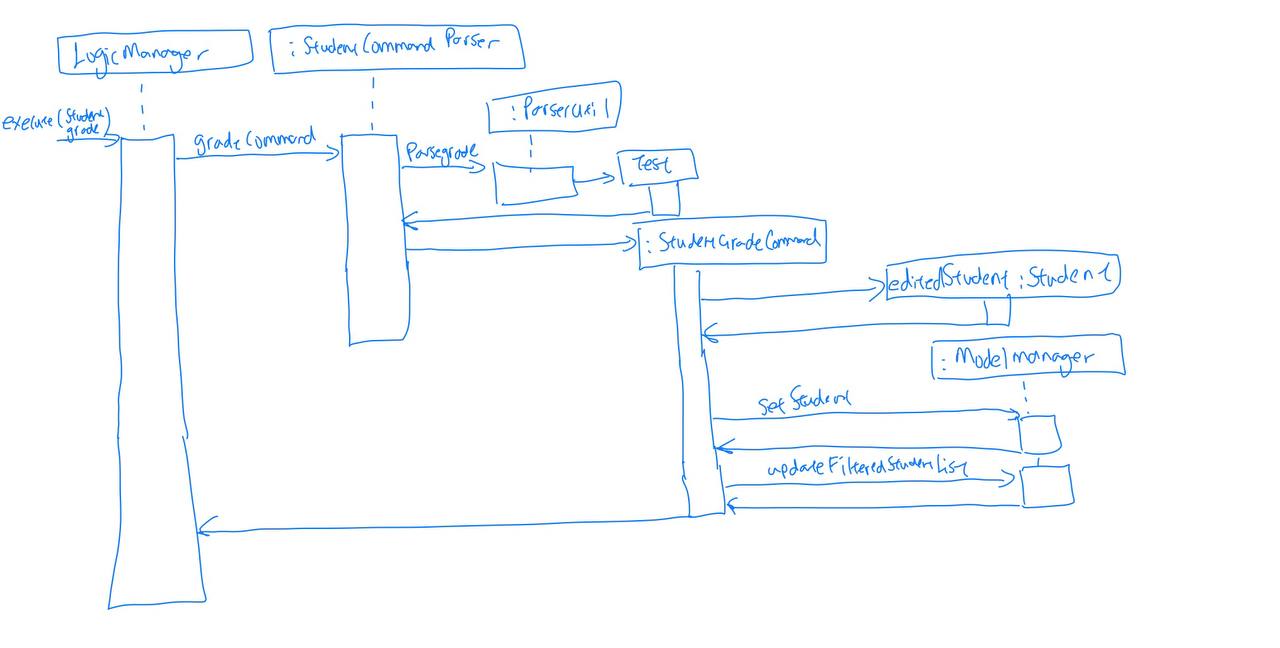 LogicManager
: StudentCommand Parser
execute(Student
grade)
gradeCommand
: ParserUtil
Parsegrade
Test
: StudentGradeCommand
editedStudent : Student
: Modelmanager
Set Student
updateFilteredStudentList